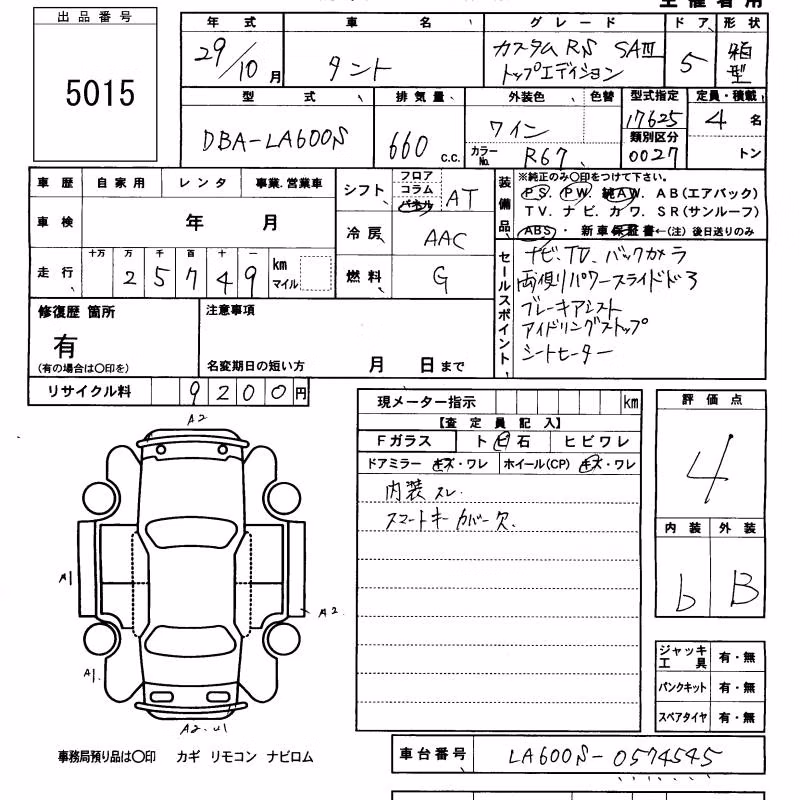 出品番号
5015
年式 車名 グレード ドア 形状
29/10月 タント カスタムRS SAⅢ トップエディション 5 箱型
型式 排気量 外装色 色替 型式指定 定員・積載
DBA-LA600S 660 c.c. ワイン 17625 4名
カラーNo. R67 類別区分 0027 トン
車歴 自家用 レンタ 事業.営業車
車検 年 月
走行 十万 万 千 百 十 一
2 5 7 4 9 km マイル
シフト フロア コラム パネル AT
冷房 AAC
燃料 G
装備品
※純正のみ○印をつけて下さい。
PS. PW. 純AW. AB(エアバック)
TV. ナビ. カワ. SR(サンルーフ)
ABS・ 新車保証書←(注) 後日送りのみ
セールスポイント
ナビ、TV、バックカメラ
両側パワースライドドア
ブレーキアシスト
アイドリングストップ
シートヒーター
修復歴 箇所
有
(有の場合は○印を)
注意事項
名変期日の短い方 月 日まで
リサイクル料 9200円
現メーター指示 km
【査定員記入】
Fガラス ト ビ 石 ヒビワレ
ドアミラー キズ・ワレ ホイール(CP) キズ・ワレ
内装スレ.
スマートキーカバー欠.
評価点
4
内装 外装
b B
ジャッキ工具 有・無
パンクキット 有・無
スペアタイヤ 有・無
A2
A1
A2
A1
A2.U1
事務局預り品は○印 カギ リモコン ナビロム
車台番号 LA600S-0574545